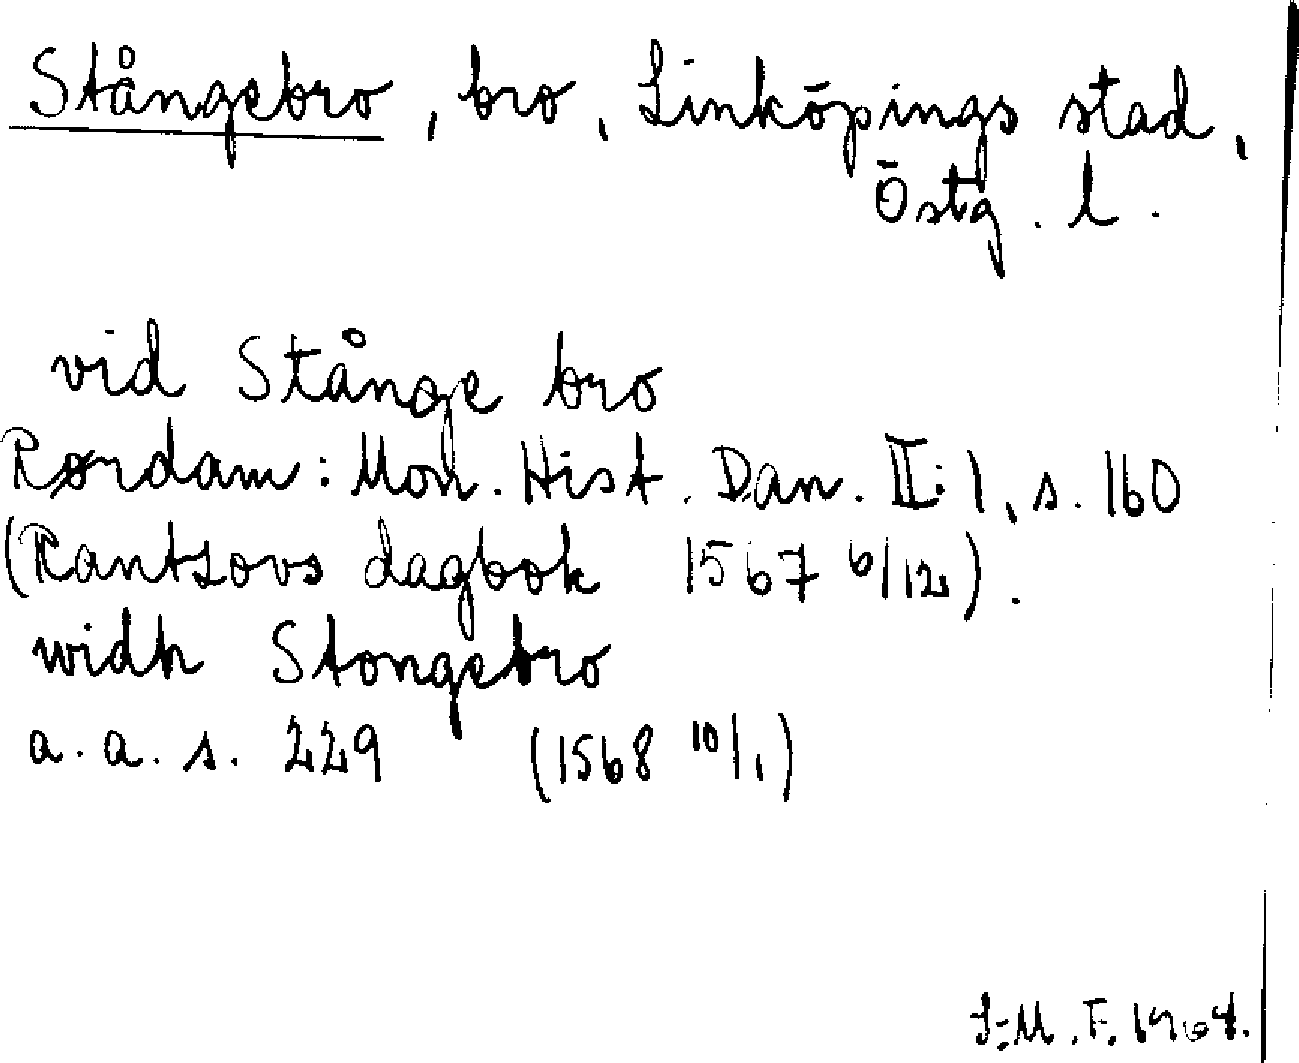 Stångebro, bro, Linköpings stad,
Östg. l.
vid Stånge bro
Rørdam: Mon. Hist. Dan. II: 1, s. 160
(Rantzovs dagbok 1567 6/12).
widh Stongebro
a. a. s. 229 (1568 10/1)
L-M. F. 1964.